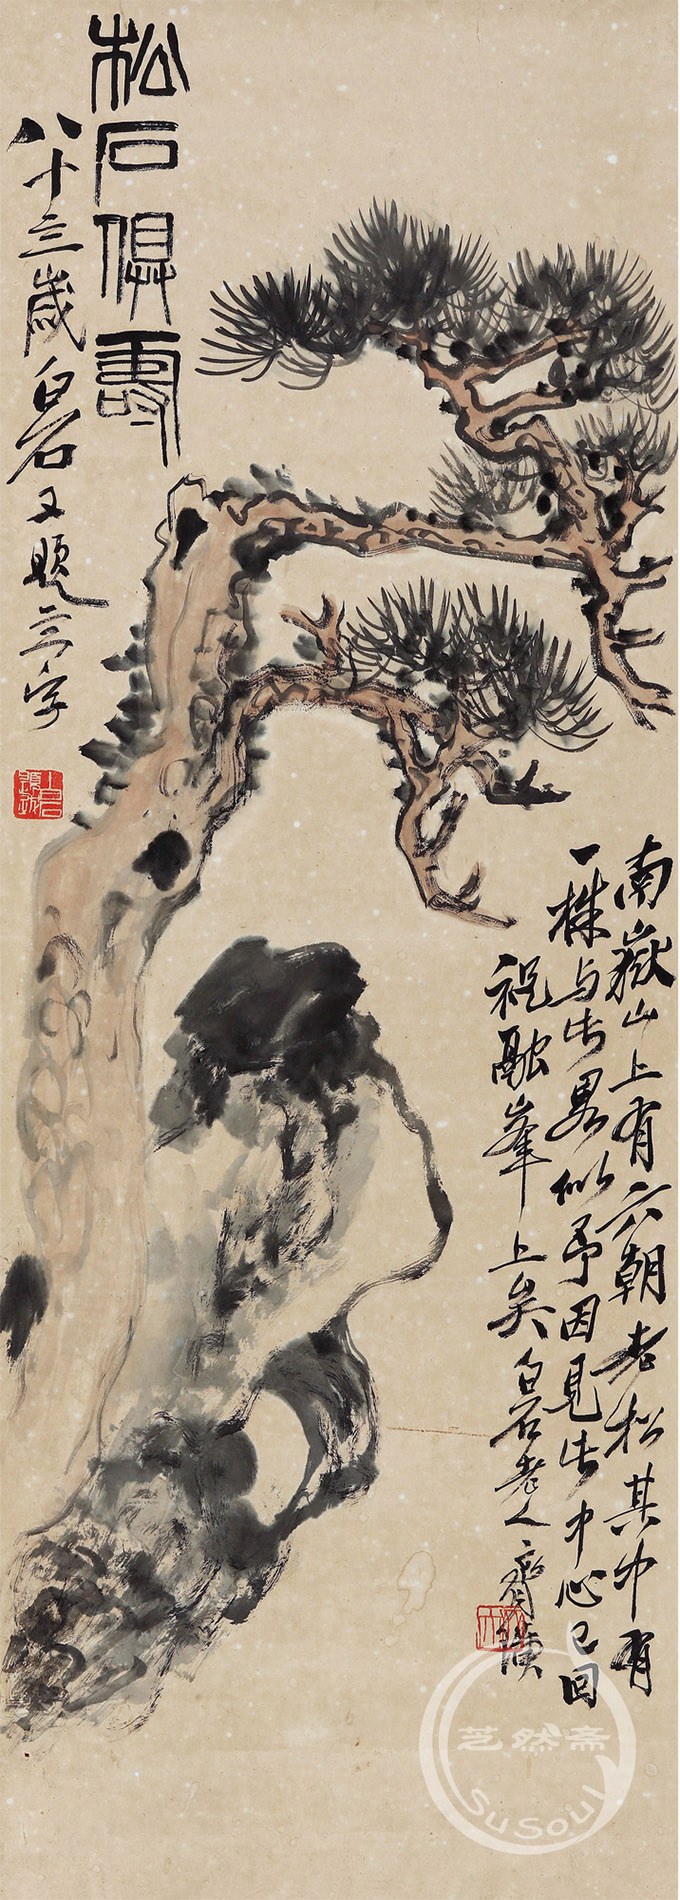 松石俱壽
八十三歲白石又題三字
南嶽山上有六朝老松其中有
一株与此畧似予因見此中心已回
祝融峯上矣白石老人齊璜
芝然斋
SuSoul